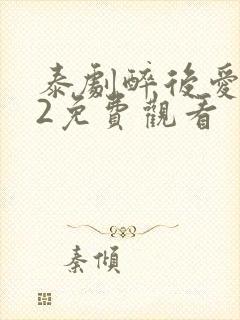 泰劇醉後愛
2免費觀看
秦傾